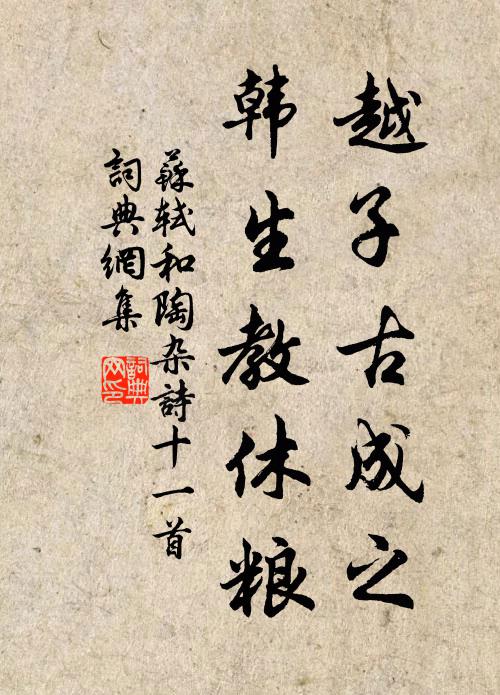 越子古成之
韩生教休粮
蘇轼和陶杂詩十一首
詞典網集
詞典
网印